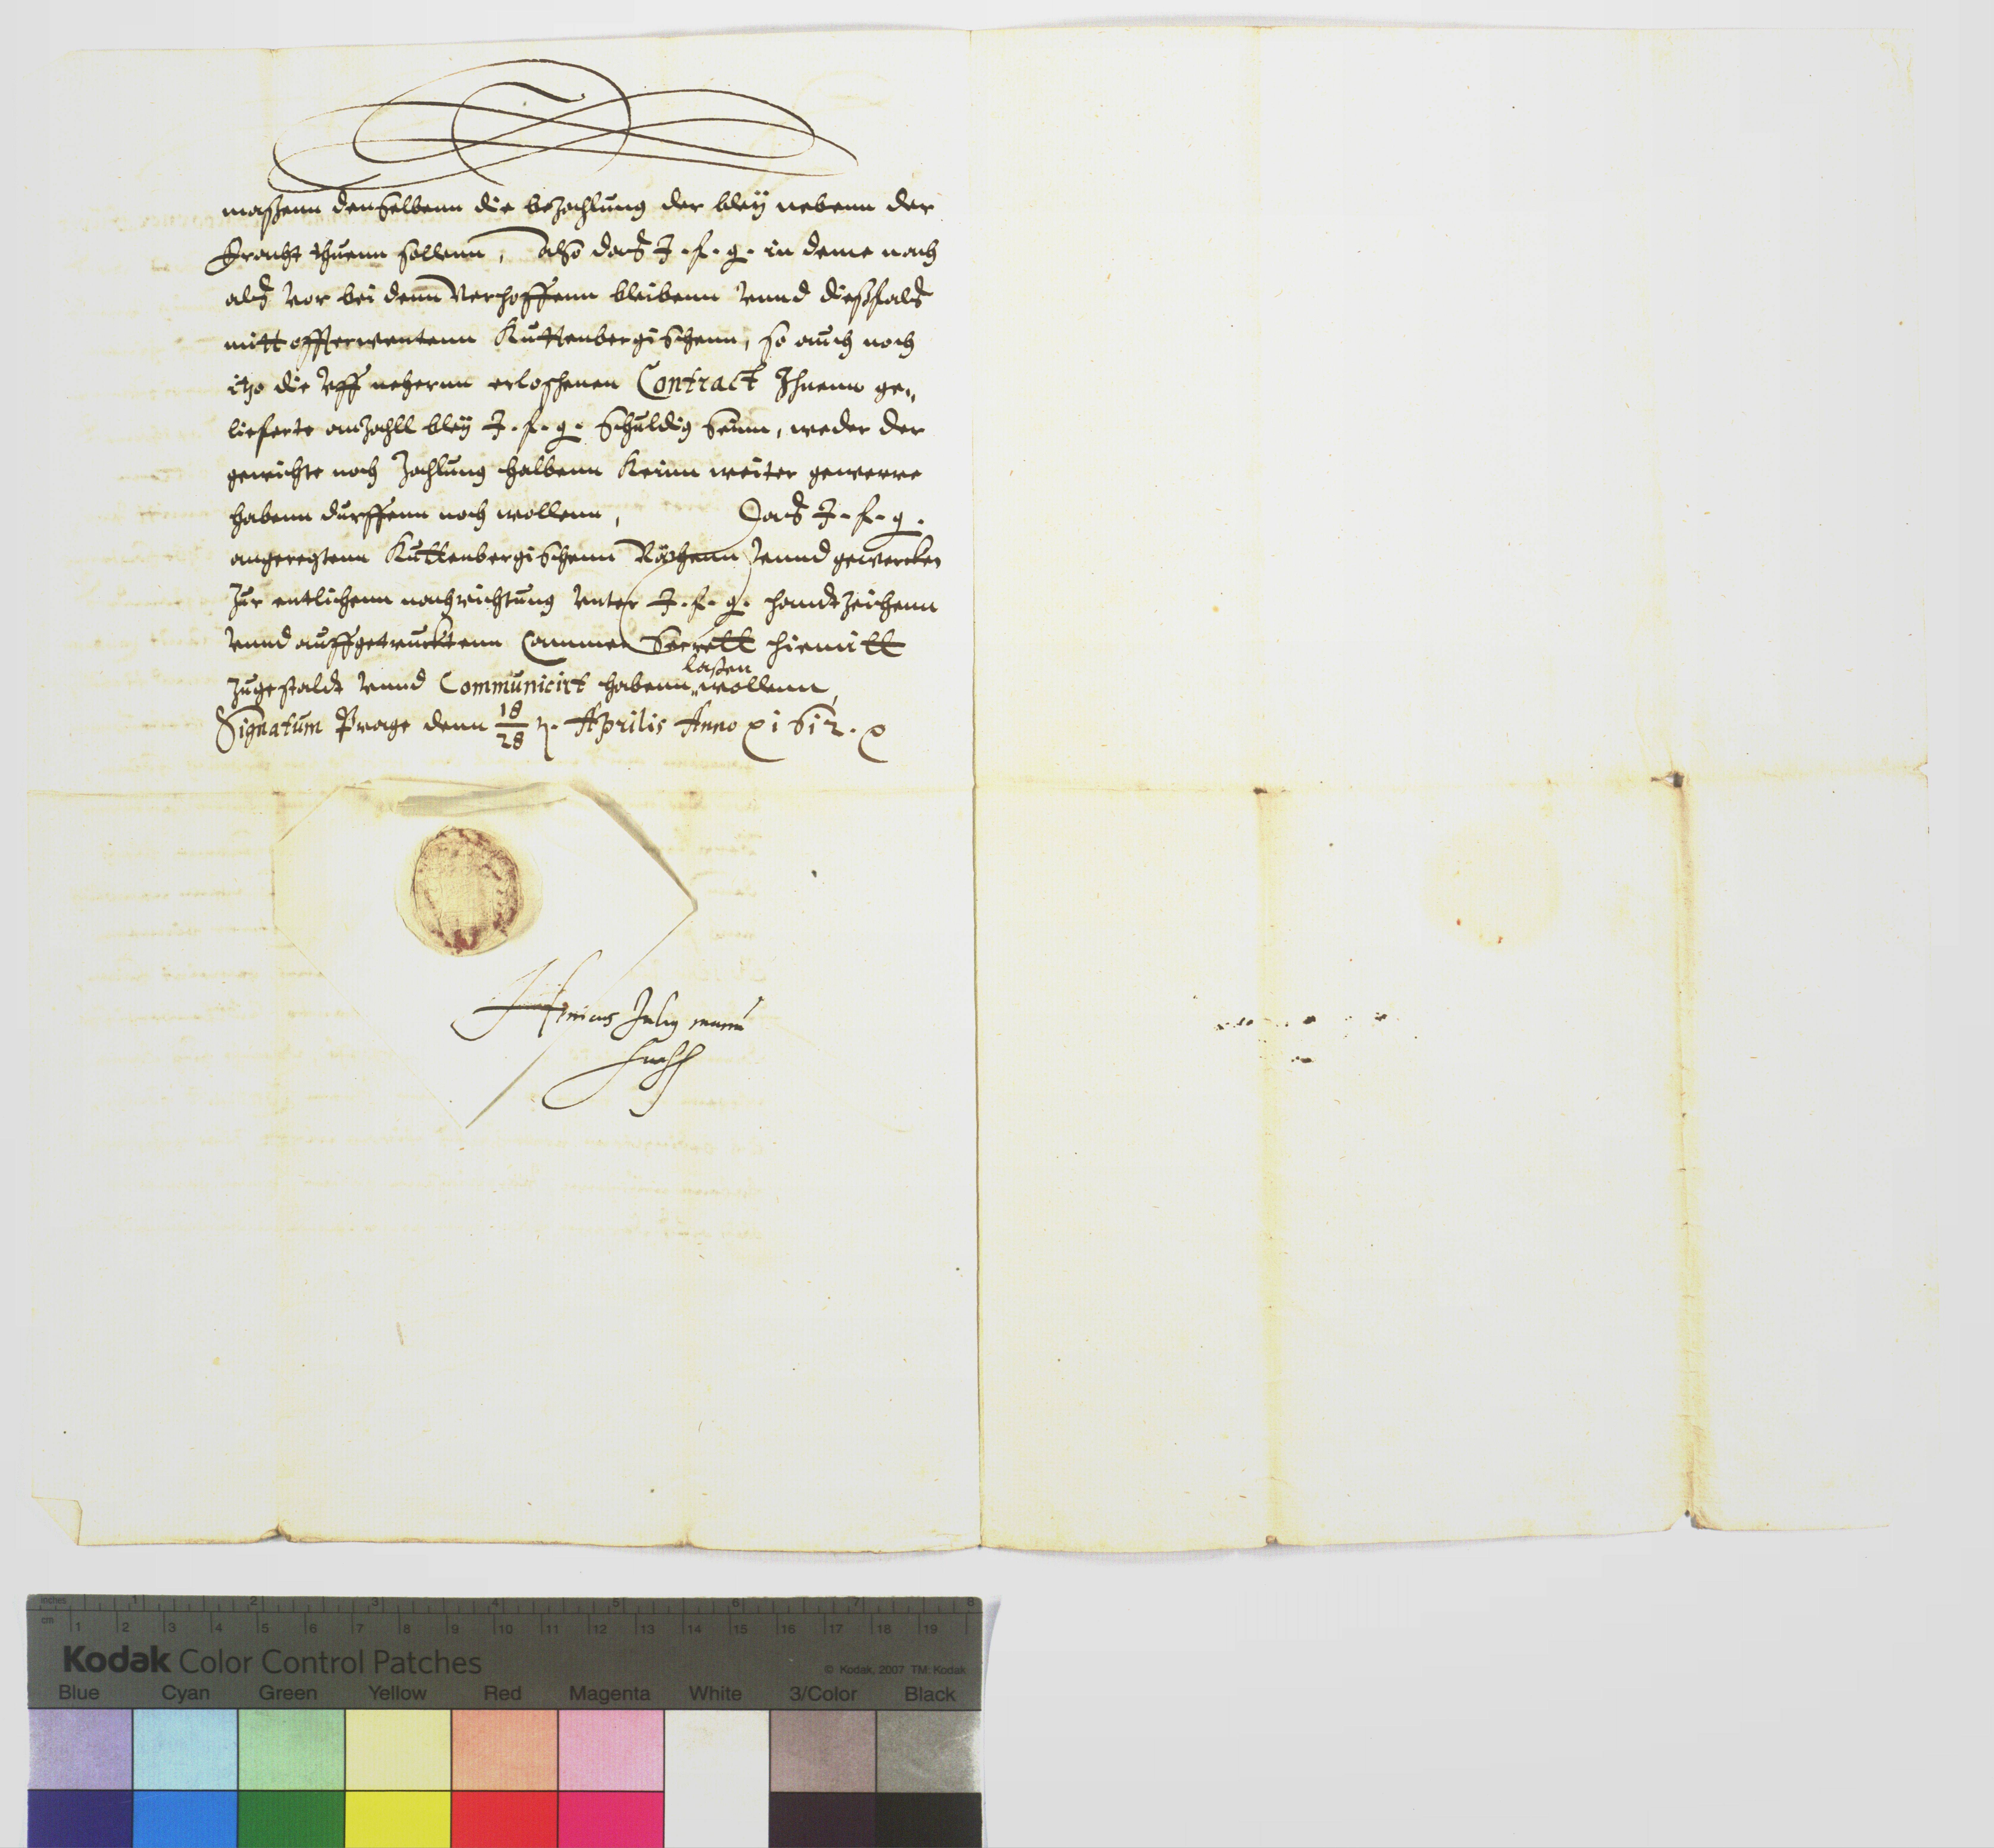 maßenn denselbenn die bezahlung der bleÿ nebenn der
Fracht thuenn sollenn, also das J. f. g. in deme nach
als vor bei denn verhoffenn bleibenn vnnd dießfals
mitt offterwentenn Kuttenbergischenn, so auch noch
itzo die vff nehernn erloschenen Contract Ihnenn ge„
lieferte anzahll bleÿ J. f. g. schuldig seinn, weder der
gewichte noch zahlung halbenn keinn weiter gewerre
habenn durffenn noch wollenn, Das J. f. g.
angeregtenn Kuttenbergischenn Räthenn vnnd gewercken
zur entlichenn nachrichtung vnter J. f. g. handtzeichenn
vnnd auffgetrucktenn Cammer Secrett hiemitt
laßen
zugestaldt vnnd Communicirt habenn wollenn,
Signatum Prage denn 18/28 t. Aprilis Anno 1612.
Henricus Julius manu
inches 1 2 3 4 5 6 7 8
cm 1 2 3 4 5 6 7 8 9 10 11 12 13 14 15 16 17 18 19
Kodak Color Control Patches
© Kodak, 2007 TM: Kodak
Blue Cyan Green Yellow Red Magenta White 3/Color Black